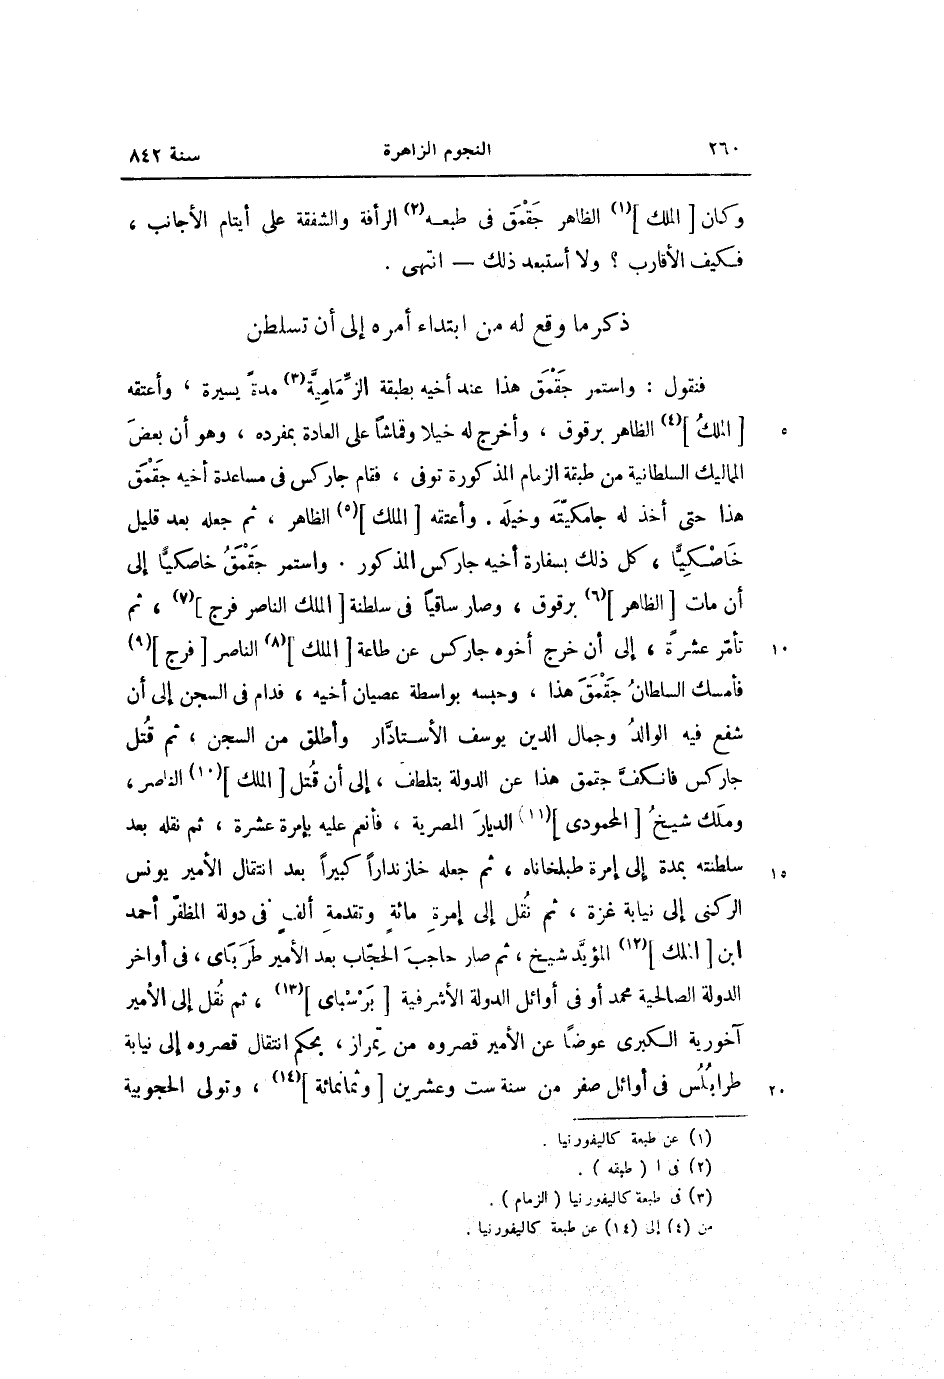 ٢٦٠ النجوم الزاهرة سنة ٨٤٢
وكان [ الملك ](١) الظاهر جَقْمَق فى طبعه(٢) الرأفة والشفقة على أيتام الأجانب ،
فكيف الأقارب ؟ ولا أستبعد ذلك — انتهى .
ذكر ما وقع له من ابتداء أمره إلى أن تسلطن
فنقول : واستمر جَقْمَق هذا عند أخيه بطبقة الزِّمَامِيَّة(٣) مدةً يسيرة ، وأعتقه
[ الملكُ ](٤) الظاهر برقوق ، وأخرج له خيلا وقماشاً على العادة بمفرده ، وهو أن بعضَ ٥
المماليك السلطانية من طبقة الزمام المذكورة توفى ، فقام جاركس فى مساعدة أخيه جَقْمَق
هذا حتى أخذ له جامكيّتَه وخيلَه . وأعتقه [ الملك ](٥) الظاهر ، ثم جعله بعد قليل
خَاصْكِيًّا ، كل ذلك بسفارة أخيه جاركس المذكور . واستمر جَقْمَقُ خاصكيًّا إلى
أن مات [ الظاهر ](٦) برقوق ، وصار ساقياً فى سلطنة [ الملك الناصر فرج ](٧) ، ثم
تأمّر عشرةً ، إلى أن خرج أخوه جاركس عن طاعة [ الملك ](٨) الناصر [ فرج ](٩) ١٠
فأمسك السلطانُ جَقْمَقَ هذا ، وحبسه بواسطة عصيان أخيه ، فدام فى السجن إلى أن
شفع فيه الوالدُ وجمال الدين يوسف الأستادَّار وأطلق من السجن ، ثم قُتل
جاركس فانكفَّ جقمق هذا عن الدولة بتلطف ، إلى أن قُتل [ الملك ](١٠) الناصر ،
وملَك شيخُ [ المحمودى ](١١) الديارَ المصرية ، فأنعم عليه بإمرة عشرة ، ثم نقله بعد
سلطنته بمدة إلى إمرة طبلخاناه ، ثم جعله خازنداراً كبيراً بعد انتقال الأمير يونس ١٥
الركنى إلى نيابة غزة ، ثم نُقل إلى إمرةِ مائةٍ وتقدمةِ ألفٍ فى دولة المظفّر أحمد
ابن [ الملك ](١٢) المؤيَّد شيخ ، ثم صار حاجبَ الحجّاب بعد الأمير طَرَبَاى ، فى أواخر
الدولة الصالحية محمد أو فى أوائل الدولة الأشرفية [ بَرْسْبَاى ](١٣) ، ثم نُقل إلى الأمير
آخورية الكبرى عوضًا عن الأمير قصروه من تِمراز ، بحكم انتقال قصروه إلى نيابة
طرابُلُس فى أوائل صفر من سنة ست وعشرين [ وثمانمائة ](١٤) ، وتولى الحجوبية ٢٠
(١) عن طبعة كاليفورنيا .
(٢) فى ا ( طبقه ) .
(٣) فى طبعة كاليفورنيا ( الزمام ) .
من (٤) إلى (١٤) عن طبعة كاليفورنيا .